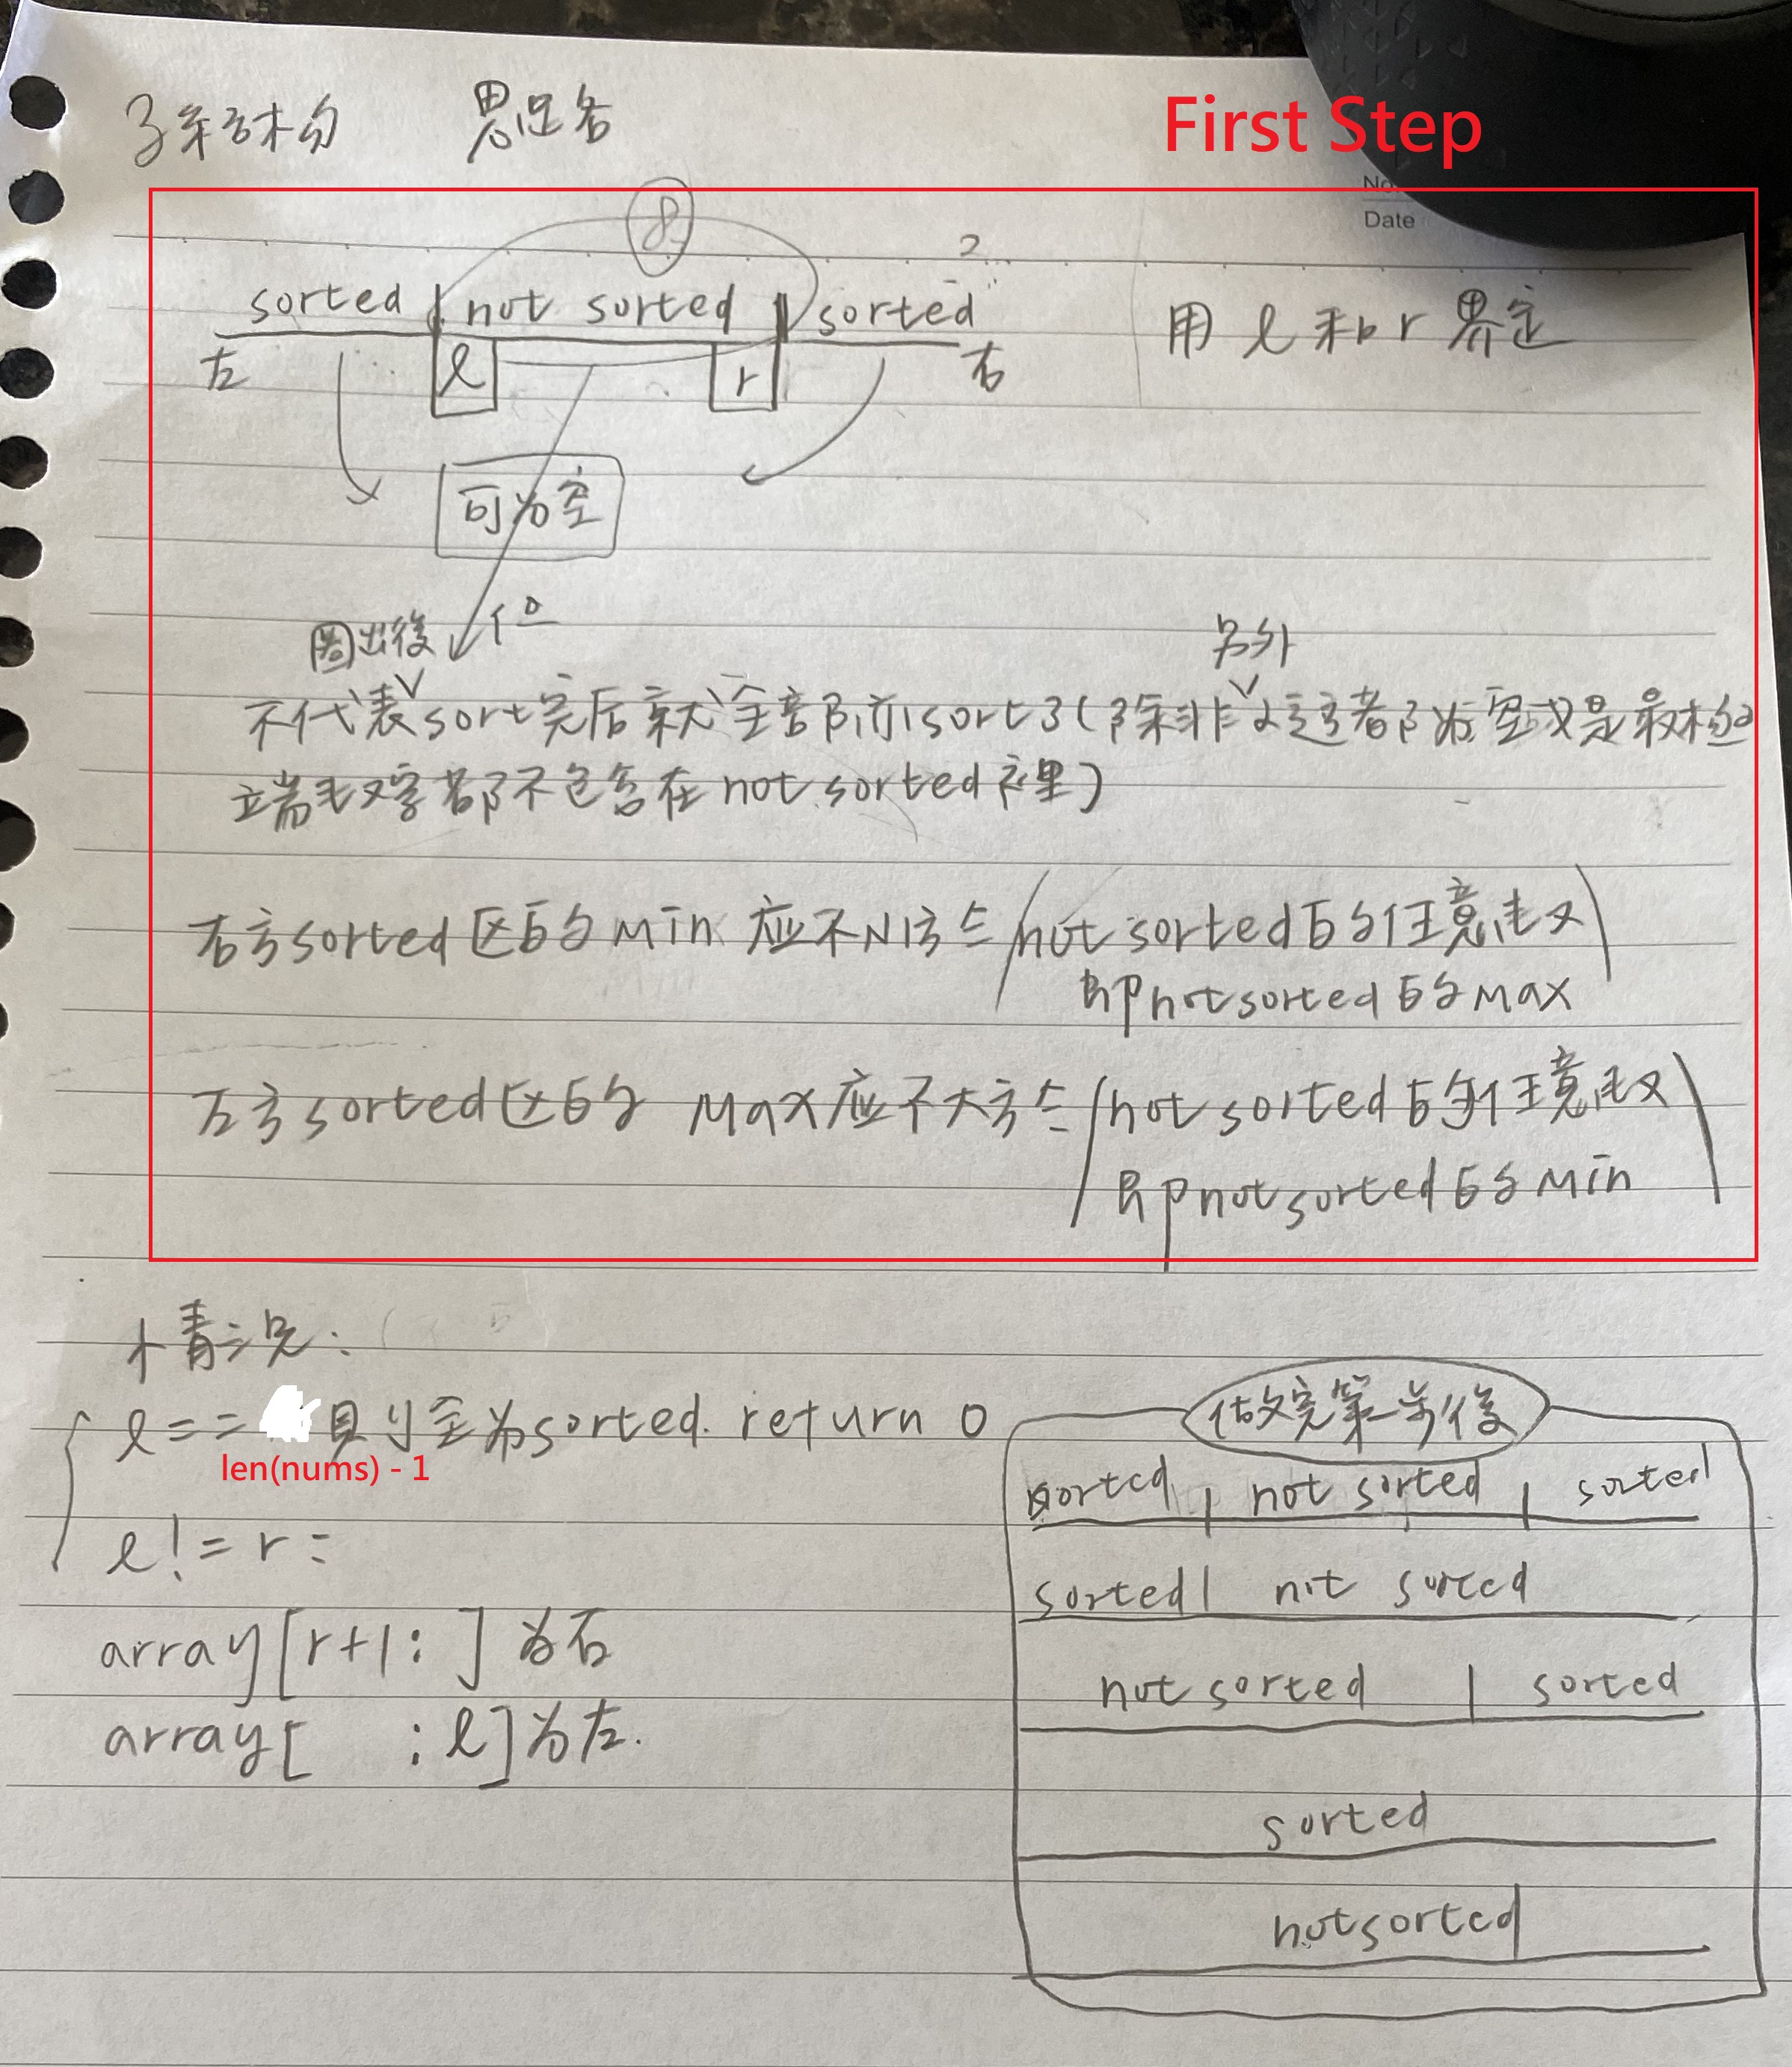 子东西构 思路
First Step
No
Date
8
2
sorted not sorted sorted
左 l r 右
用 l 和 r 界定
可为空
圈出後 但
另外
不代表sort完后就全部所sort了(除非 这者都为空或是最极
端 字都不包含在not sorted裡)
右方sorted区的Min应不小于 not sorted的任意数
即not sorted的Max
左方sorted区的Max应不大于 not sorted的任意数
即not sorted的Min
情况:
l == 则全为sorted. return 0
len(nums) - 1
l != r:
array[r+1: ]为右
array[ :l]为左.
做完第一步後
sorted | not sorted | sorted
sorted | not sorted
not sorted | sorted
sorted
not sorted |